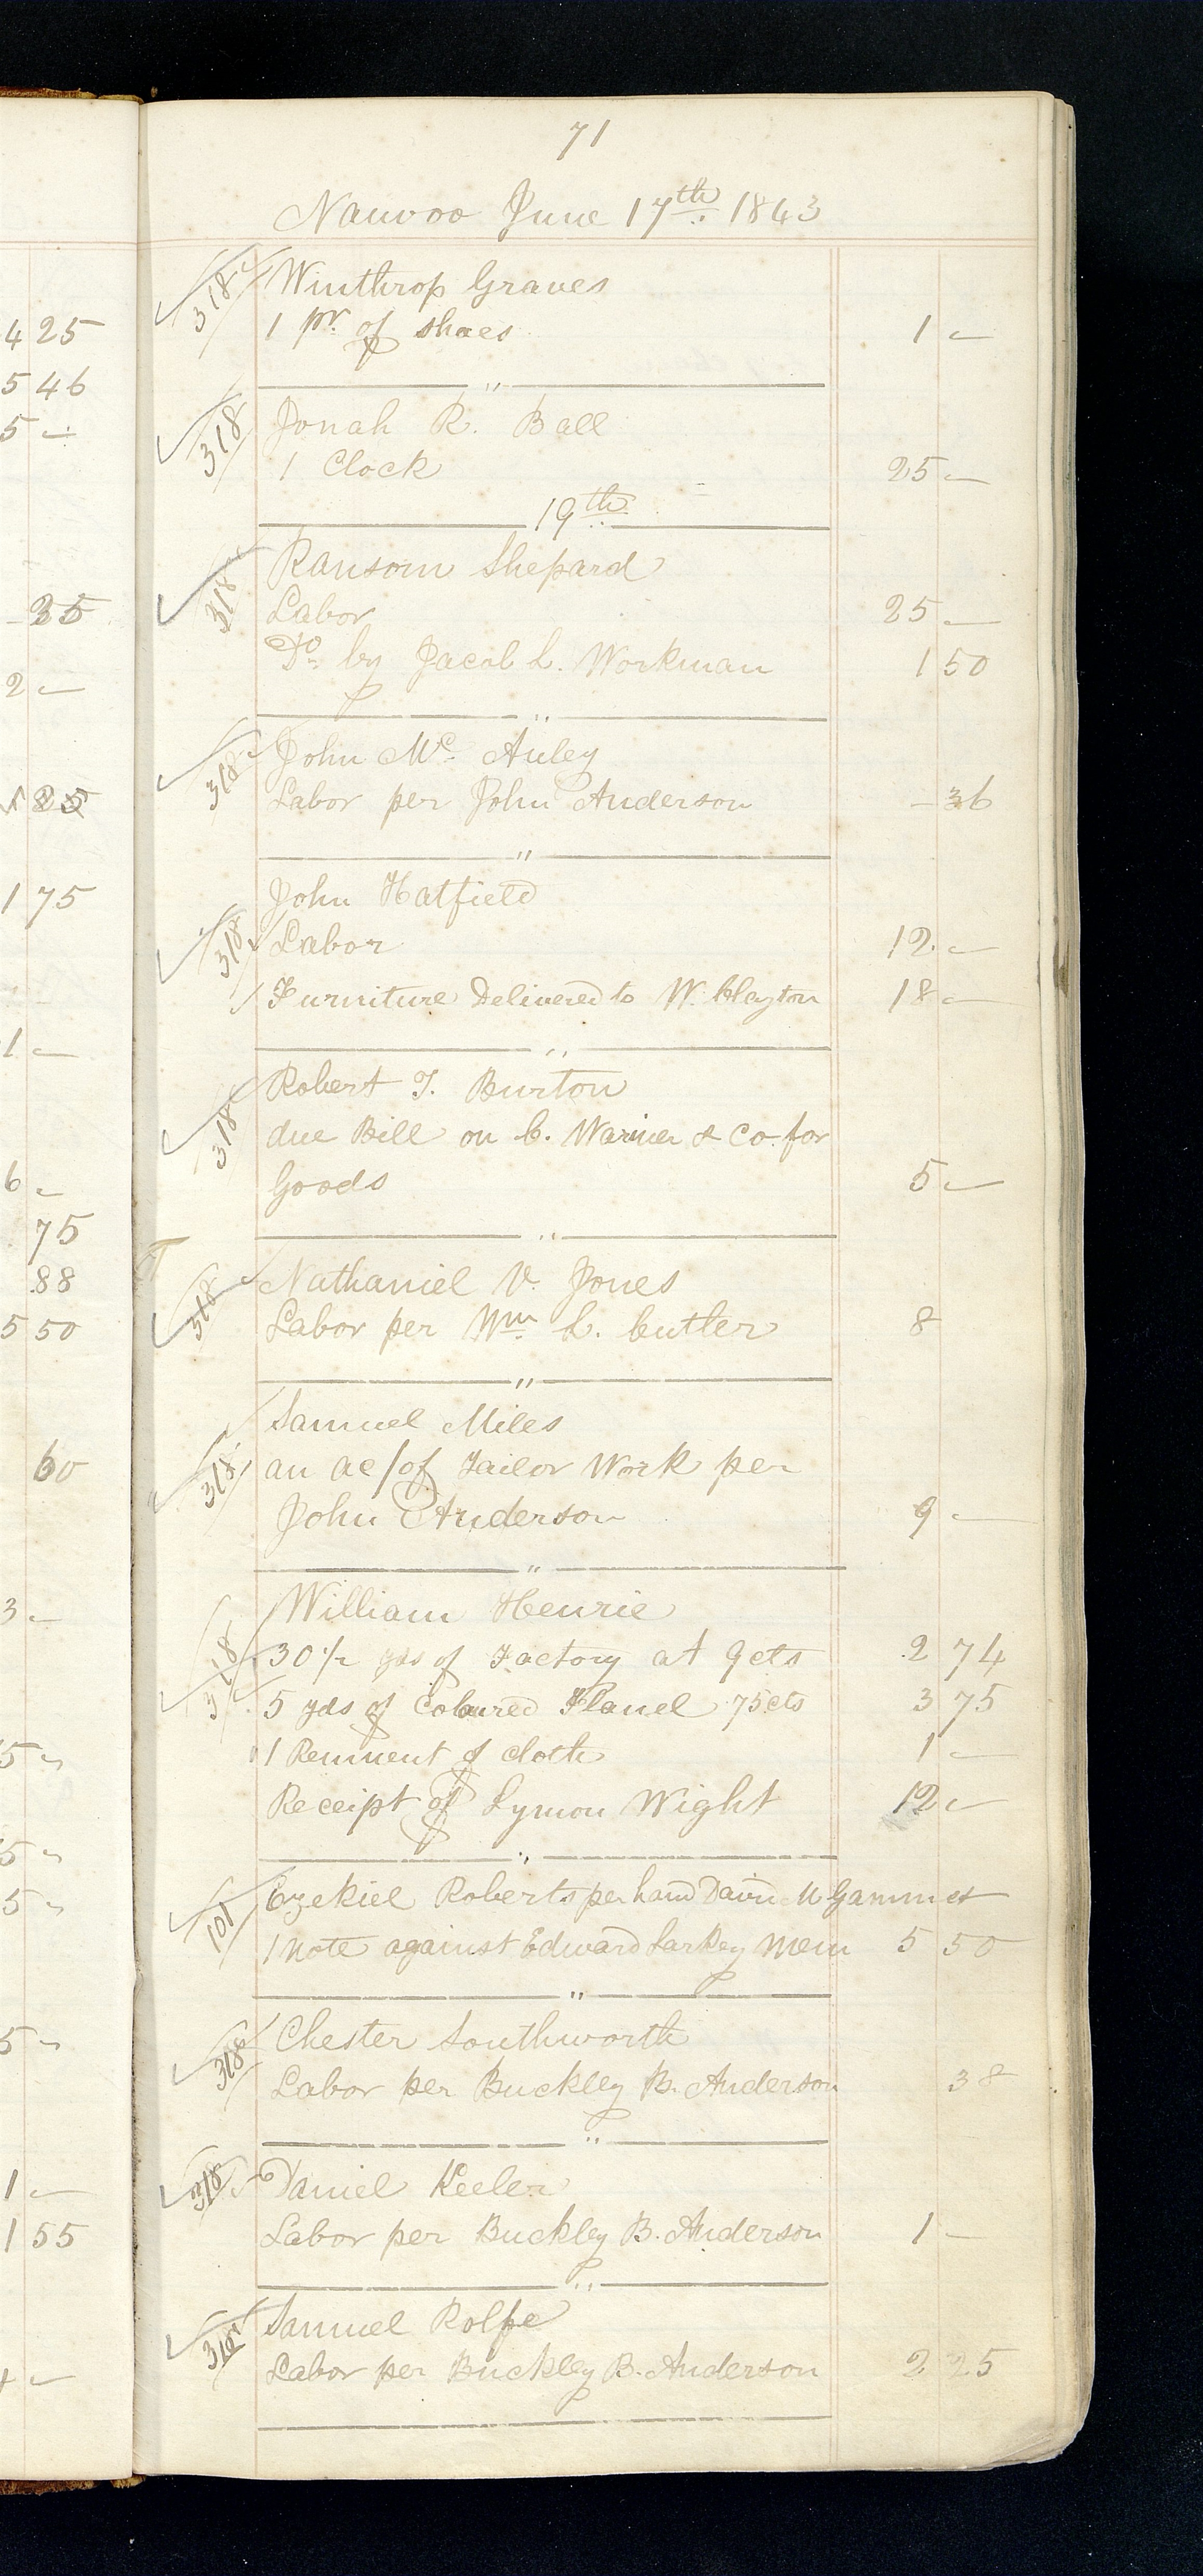 71
Nauvoo June 17th 1843
318 Winthrop Graves
1 pr. of shoes 1 —
"
318 Jonah R. Ball
1 Clock 25 —
19th
318 Ransom Shepard
Labor 25 —
Do. by Jacob L. Workman 1 50
"
318 John Mc Auley
Labor per John Anderson — 36
"
John Hatfield
318 Labor 12 —
Furniture Delivered to W. Clayton 18 —
"
318 Robert T. Burton
due Bill on C. Warner & Co. for
Goods 5 —
"
318 Nathaniel V. Jones
Labor per Wm. L. Cutler 8
"
Samuel Miles
318 an ac/of Tailor Work per
John Anderson 9 —
"
William Henrie
318 30 1/2 yds of Factory at 9 cts 2 74
5 yds of Coloured Flanel 75 cts 3 75
1 Remnent of cloth 1 —
Receipt of Lymon Wight 12 —
"
101 Ezekiel Roberts per hand David M Gammet
1 note against Edward Larkey Mem 5 50
"
318 Chester Southworth
Labor per Buckley B. Anderson 38
"
318 Daniel Keeler
Labor per Buckley B. Anderson 1 —
"
Samuel Rolfe
Labor per Buckley B. Anderson 2 25
4 25
5 46
5 —
2 —
1 75
1 —
6 —
75
88
5 50
60
3 —
5 —
5 —
5 —
5 —
1 —
1 55